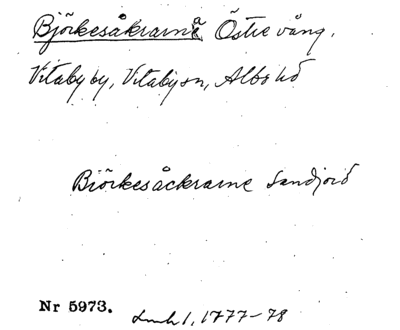 Björkesåkrarna Östre vång.
Vitaby by, Vitaby sn, Albo hd
Biörkesåckrarne Sandjord
Nr 5973. Lmh 1, 1777-78